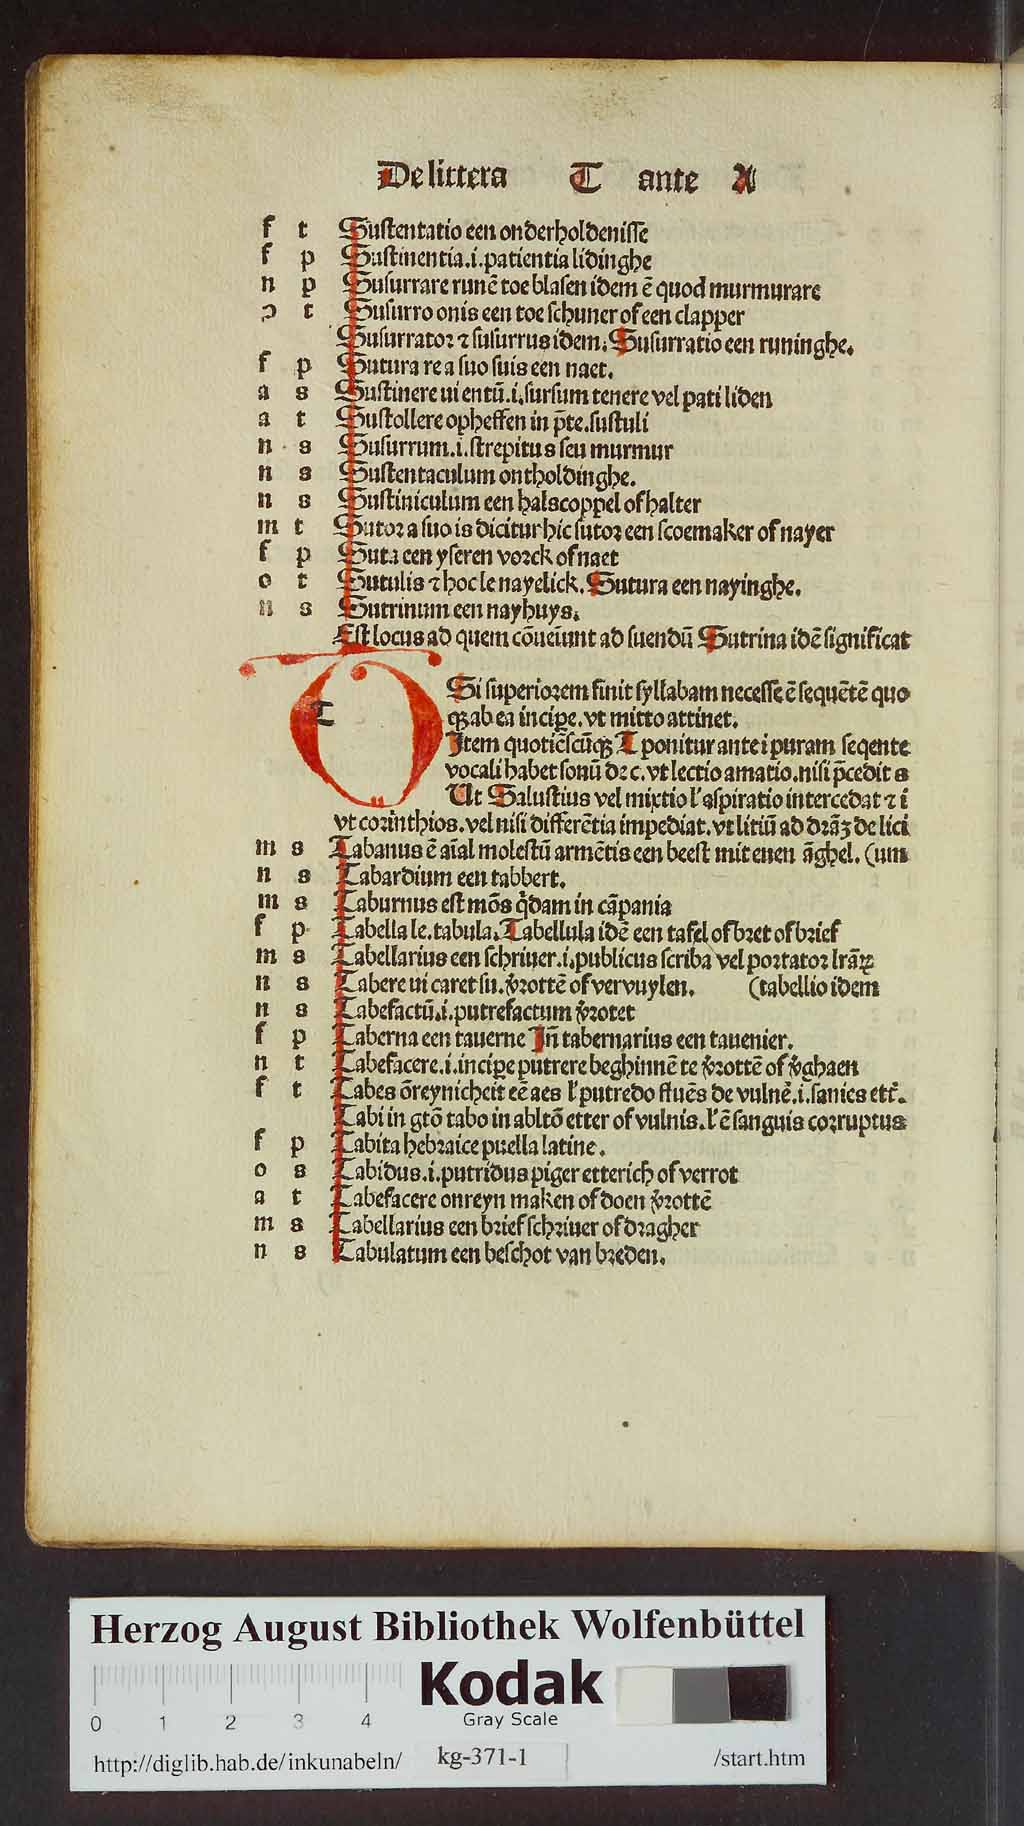 De littera T ante A
f t Sustentatio een onderholdenisse
f p Sustinentia .i. patientia lidinghe
n p Susurrare runē toe blasen idem ē quod murmurare
ꝯ t Susurro onis een toe schuner of een clapper
Susurrator ⁊ susurrus idem. Susurratio een runinghe.
f p Sutura re a suo suis een naet.
a s Sustinere ui entū .i. sursum tenere vel pati liden
a t Sustollere opheffen in p̄te. sustuli
n s Susurrum .i. strepitus seu murmur
n s Sustentaculum ontholdinghe.
n s Sustiniculum een halscoppel of halter
m t Sutor a suo is dicitur hic sutor een scoemaker of nayer
f p Suta een yseren vorck of naet
o t Sutulis ⁊ hoc le nayelick. Sutura een nayinghe.
n s Sutrinum een nayhuys.
Est locus ad quem cōueniunt ad suendū Sutrina idē significat
T
Si superiorem finit syllabam necesse ē sequētē quo
qꝫ ab ea incipe. vt mitto attinet.
Item quotiēscūqꝫ T ponitur ante i puram seqente
vocali habet sonū dr c. vt lectio amatio. nisi p̄cedit s
Ut Salustius vel mixtio l' aspiratio intercedat ⁊ i
vt corinthios. vel nisi differētia impediat. vt litiū ad drāꝫ de lici
m s Tabanus ē aīal molestū armētis een beest mit enen āghel. (um
n s Tabardium een tabbert.
m s Taburnus est mōs q̇dam in cāpania
f p Tabella le. tabula. Tabellula idē een tafel of bret of brief
m s Tabellarius een schriuer .i. publicus scriba vel portator lrāꝝ
n s Tabere ui caret su. v̄rottē of vervuylen. (tabellio idem
n s Tabefactū .i. putrefactum v̄rotet
f p Taberna een tauerne Iñ tabernarius een tauenier.
n t Tabefacere .i. incipe putrere beghinnē te v̄rottē of v̄ghaen
f t Tabes ōreynicheit eē aes l' putredo fluēs de vulnē .i. sanies ett'.
Tabi in gtō tabo in abltō etter of vulnis. l' ē sanguis corruptus
f p Tabita hebraice puella latine.
o s Tabidus .i. putridus piger etterich of verrot
a t Tabefacere onreyn maken of doen v̄rottē
m s Tabellarius een brief schriuer of dragher
n s Tabulatum een beschot van breden.
Herzog August Bibliothek Wolfenbüttel
Kodak
Gray Scale
0 1 2 3 4
http://diglib.hab.de/inkunabeln/ kg-371-1 /start.htm